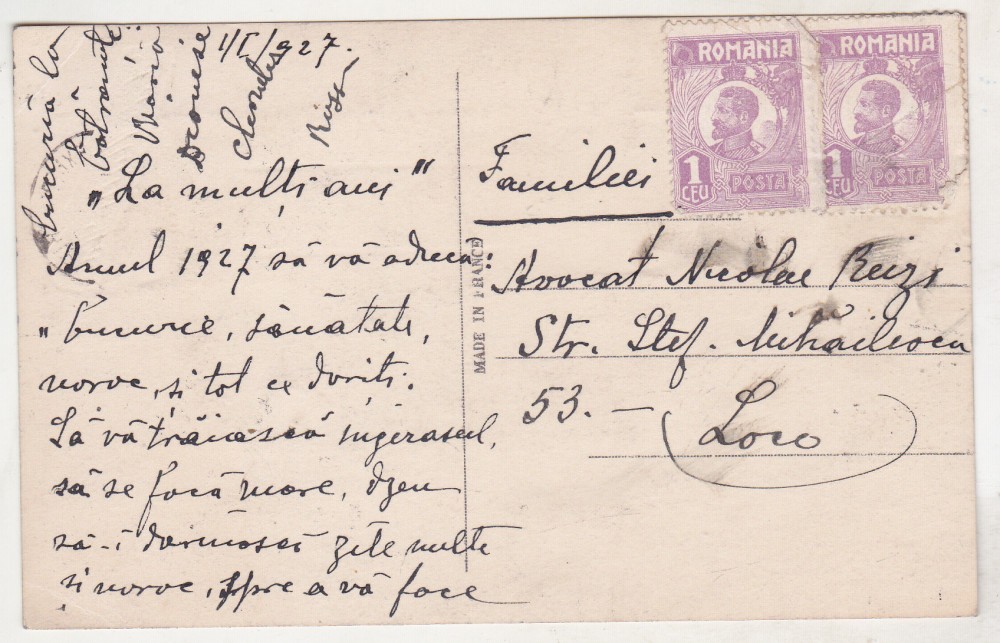 1/I/927.
„La mulți ani"
Anul 1927 să vă aducă:
„bucurie, sănătate,
noroc, și tot ce doriți.
Să vă trăiască îngerașul,
să se facă mare, 
să-i dăruiască zile multe
și noroc, spre a vă face
bucuria la
bătrânețe
Maria
Dionisie
ROMANIA
1 LEU POSTA
ROMANIA
1 LEU POSTA
MADE IN FRANCE
Familiei
Avocat Nicolae
Str. Ștef. Mihăileanu
53. —
Loco